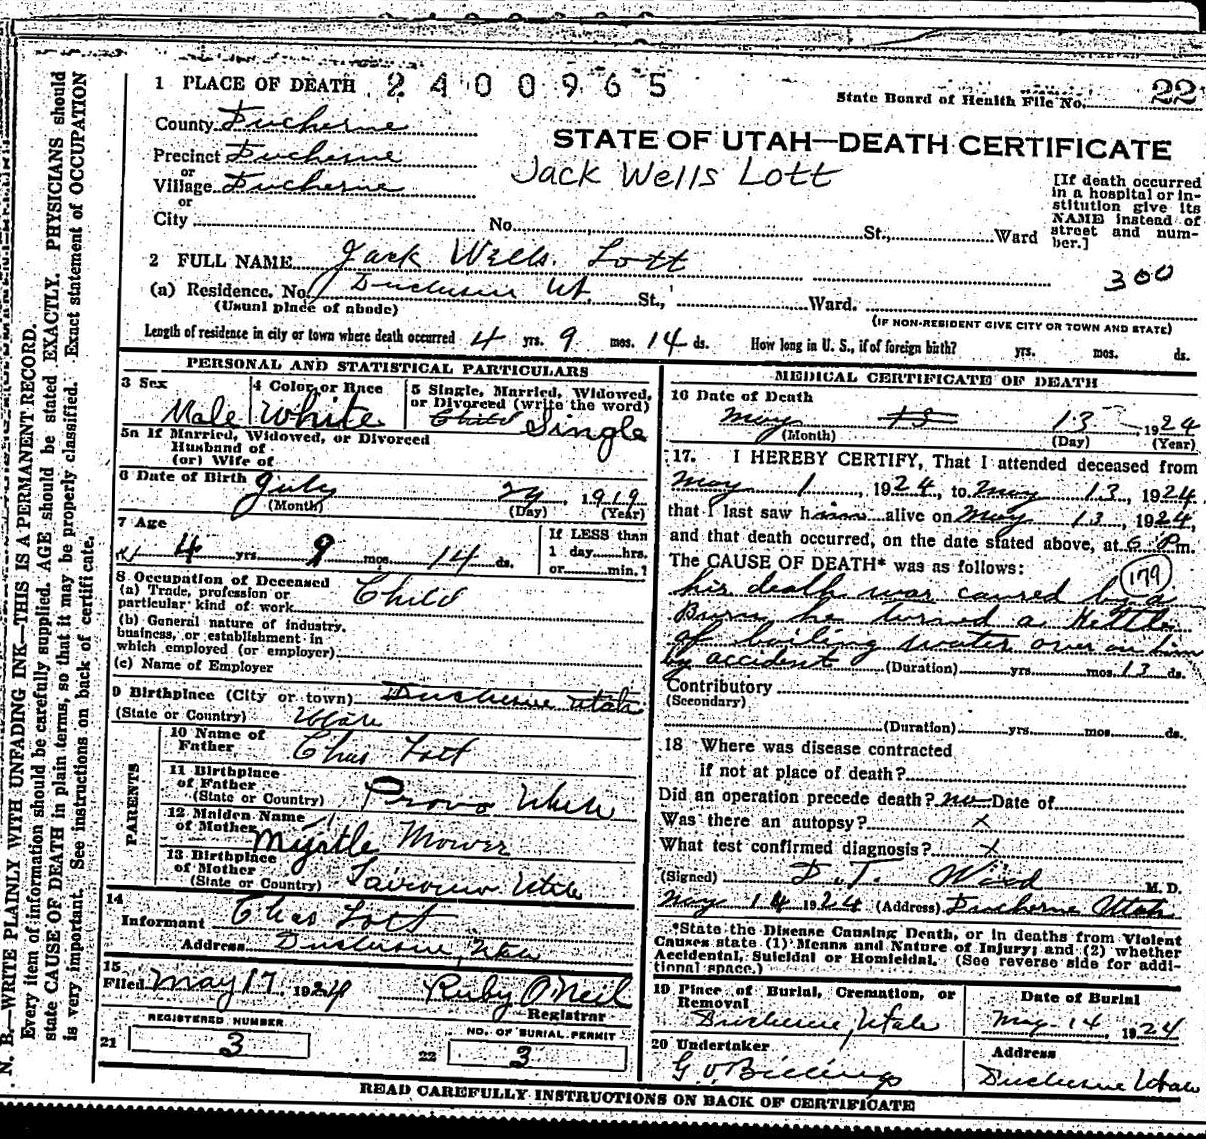 1 PLACE OF DEATH 2400965
State Board of Health File No. 22
County Duchesne
STATE OF UTAH—DEATH CERTIFICATE
Precinct Duchesne
or
Village Duchesne
or
Jack Wells Lott
[If death occurred in a hospital or institution give its NAME instead of street and number.]
City No. St., Ward
2 FULL NAME Jack Wells Lott
300
(a) Residence, No. Duchesne Ut. St., Ward.
(Usual place of abode)
(IF NON-RESIDENT GIVE CITY OR TOWN AND STATE)
Length of residence in city or town where death occurred 4 yrs. 9 mos. 14 ds. How long in U. S., if of foreign birth? yrs. mos. ds.
PERSONAL AND STATISTICAL PARTICULARS
3 Sex Male
4 Color or Race White
5 Single, Married, Widowed, or Divorced (write the word) Child Single
5a If Married, Widowed, or Divorced
Husband of
(or) Wife of
6 Date of Birth July 29, 1919
(Month) (Day) (Year)
7 Age
4 yrs. 9 mos. 14 ds.
If LESS than
1 day hrs.
or min.?
8 Occupation of Deceased
(a) Trade, profession or
particular kind of work Child
(b) General nature of industry,
business, or establishment in
which employed (or employer)
(c) Name of Employer
9 Birthplace (City or town) Duchesne Utah
(State or Country) Utah
PARENTS
10 Name of
Father Chas Lott
11 Birthplace
of Father
(State or Country) Provo Utah
12 Maiden Name
of Mother Myrtle Mower
13 Birthplace
of Mother
(State or Country) Fairview Utah
14
Informant Chas Lott
Address Duchesne, Utah
15
Filed May 17, 1924 Ruby O'Neil
Registrar
REGISTERED NUMBER
21 3
NO. OF BURIAL PERMIT
22 3
MEDICAL CERTIFICATE OF DEATH
16 Date of Death
May 13 1924
(Month) (Day) (Year)
17. I HEREBY CERTIFY, That I attended deceased from
May 1, 1924, to May 13, 1924
that I last saw him alive on May 13, 1924,
and that death occurred, on the date stated above, at 6 Pm.
The CAUSE OF DEATH* was as follows: 179
his death was caused by a
Burn he turned a Kettle
of boiling water over on him
by accident (Duration) yrs. mos. 13 ds.
Contributory
(Secondary)
(Duration) yrs. mos. ds.
18 Where was disease contracted
if not at place of death?
Did an operation precede death? no Date of
Was there an autopsy? x
What test confirmed diagnosis? x
(Signed) M. D.
May 14 1924 (Address) Duchesne Utah
*State the Disease Causing Death, or in deaths from Violent
Causes state (1) Means and Nature of Injury; and (2) whether
Accidental, Suicidal or Homicidal. (See reverse side for addi-
tional space.)
19 Place of Burial, Cremation, or
Removal
Duchesne, Utah
Date of Burial
May 14 1924
20 Undertaker
G V Billings
Address
Duchesne Utah
READ CAREFULLY INSTRUCTIONS ON BACK OF CERTIFICATE
N. B.—WRITE PLAINLY WITH UNFADING INK—THIS IS A PERMANENT RECORD.
Every item of information should be carefully supplied. AGE should be stated EXACTLY. PHYSICIANS should
state CAUSE OF DEATH in plain terms, so that it may be properly classified. Exact statement of OCCUPATION
is very important. See instructions on back of certificate.